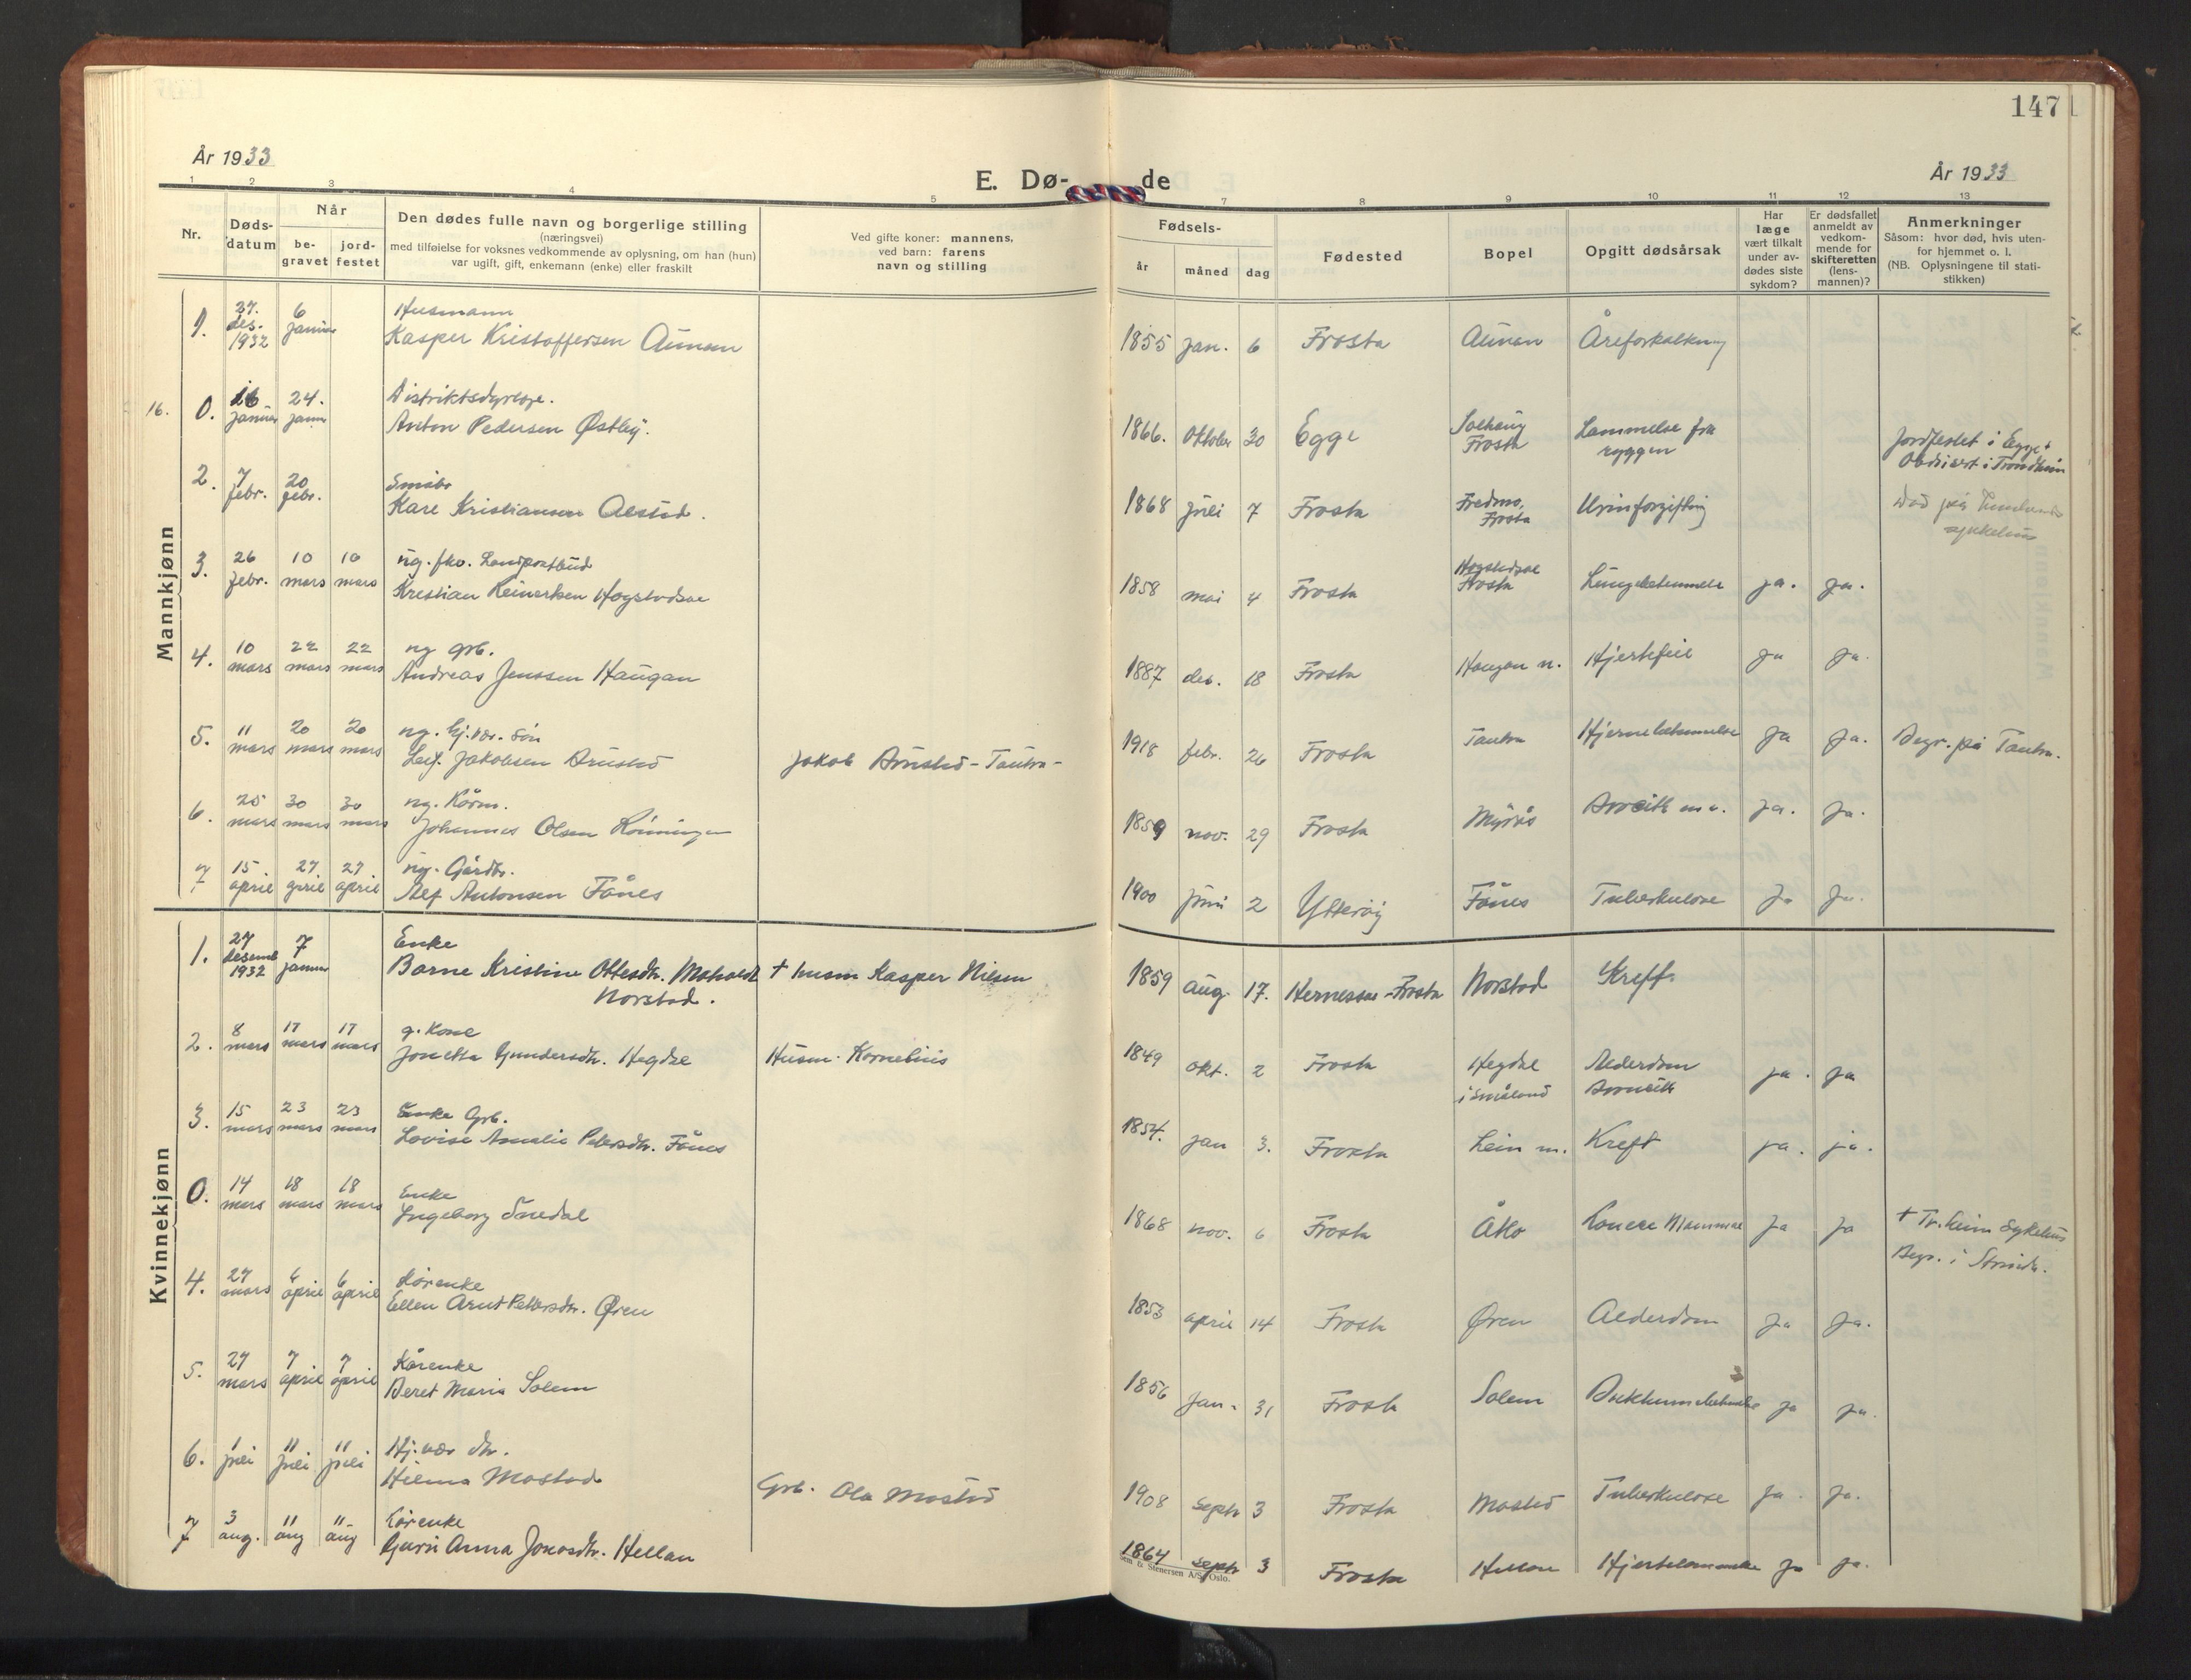 147
År 1933
År 1933
E. Dø- de
1 2 3 4 5 7 8 9 10 11 12 13
Nr.
Døds-
datum
Når
be-
gravet
jord-
festet
Den dødes fulle navn og borgerlige stilling
(næringsvei)
med tilføielse for voksnes vedkommende av oplysning, om han (hun)
var ugift, gift, enkemann (enke) eller fraskilt
Ved gifte koner: mannens,
ved barn: farens
navn og stilling
Fødsels-
år måned dag
Fødested
Bopel
Opgitt dødsårsak
Har
læge
vært tilkalt
under av-
dødes siste
sykdom?
Er dødsfallet
anmeldt av
vedkom-
mende for
skifteretten
(lens-
mannen)?
Anmerkninger
Såsom: hvor død, hvis uten-
for hjemmet o. l.
(NB. Oplysningene til stati-
stikken)
Mannkjønn
27. 6 Husmann
1. des. januar Kasper Kristoffersen Aunan 1855 jan. 6 Frosta Aunan Åreforkalkning
1932
16. 0. 16 24. Distriktsdyrlæge.
januar janu Anton Pedersen Østby. 1866. Oktober 30 Egge Solhaug Lammelse fra
Frosta ryggen
Jordfestet i Egge
Obdusert i Trondheim
2. 7 20 Småbr
febr. febr. Kristiansen Alstad. 1868 juli 7 Frosta Fredmo, Urinforgiftning
Frosta
Død på
sykehus
3. 26 10 10 ug. fho. Landpostbud
febr. mars mars Kristian Reinertsen 1858 mai 4 Frosta Frosta Lungebetennelse ja. ja.
4. 10 22 22 ug grb.
mars mars mars Andreas Jenssen Haugan 1887 des. 18 Frosta Haugan n. Hjertefeil ja ja.
5. 11 20 20 ug. hj. vær. søn
mars mars mars Leif Jakobsen Årustad Jakob Årustad - Tautra - 1918 febr. 26 Frosta Tautra Hjernebetennelse ja ja. Begr. på Tautra.
6. 25 30 30 ug. Kårm.
mars mars mars Johannes Olsen Rønningen 1859 nov. 29 Frosta Myrås ja. ja.
7 15 27 27 ug. Gårdbr.
april april april Alf Antonsen Fånes 1900 juni 2 Ytterøy Fånes Tuberkulose ja ja.
Kvinnekjønn
1. 27 7 Enke
desemb januar Barne Kristine Ottesdtr. † husm Kasper Nilsen 1859 aug. 17. Frosta Norstad Kreft.
1932 Norstad.
2. 8 17 17 g. Kone
mars mars mars Jonetta Gundersdtr. Hegdal Husm. Kornelius 1849 okt. 2 Frosta Hegdal Alderdom ja. ja
i Småland
3. 15 23 23 Enke Grb.
mars mars mars Lovise Amalie Petersdtr. Fånes 1854. jan 3. Frosta Lein m. Kreft ja. ja.
0. 14 18 18 Enke
mars mars mars Ingeborg 1868 nov. 6 Frosta Cancer Mammae ja ja † Tr.heim Sykehus
Begr. i Strinda.
4. 27 6 6 Kårenke
mars april april Ellen Arnt Pettersdtr. Øren 1853 april 14 Frosta Øren Alderdom ja ja.
5. 27 7 7 Kårenke
mars april april Beret Maria Solem 1856 jan. 31 Frosta Solem ja ja.
6. 1 11 11 Hj. vær dtr.
juli juli juli Hilma Mostad Grb. Ola Mostad 1908 Septr 3 Frosta Mostad Tuberkulose ja. ja.
7 3 11 11 Kårenke
aug. aug aug Guri Anna Jonasdtr. Hellan 1864 septr 3 Frosta Hellan Hjertelammelse ja ja.
Sem & Stenersen A/S, Oslo.